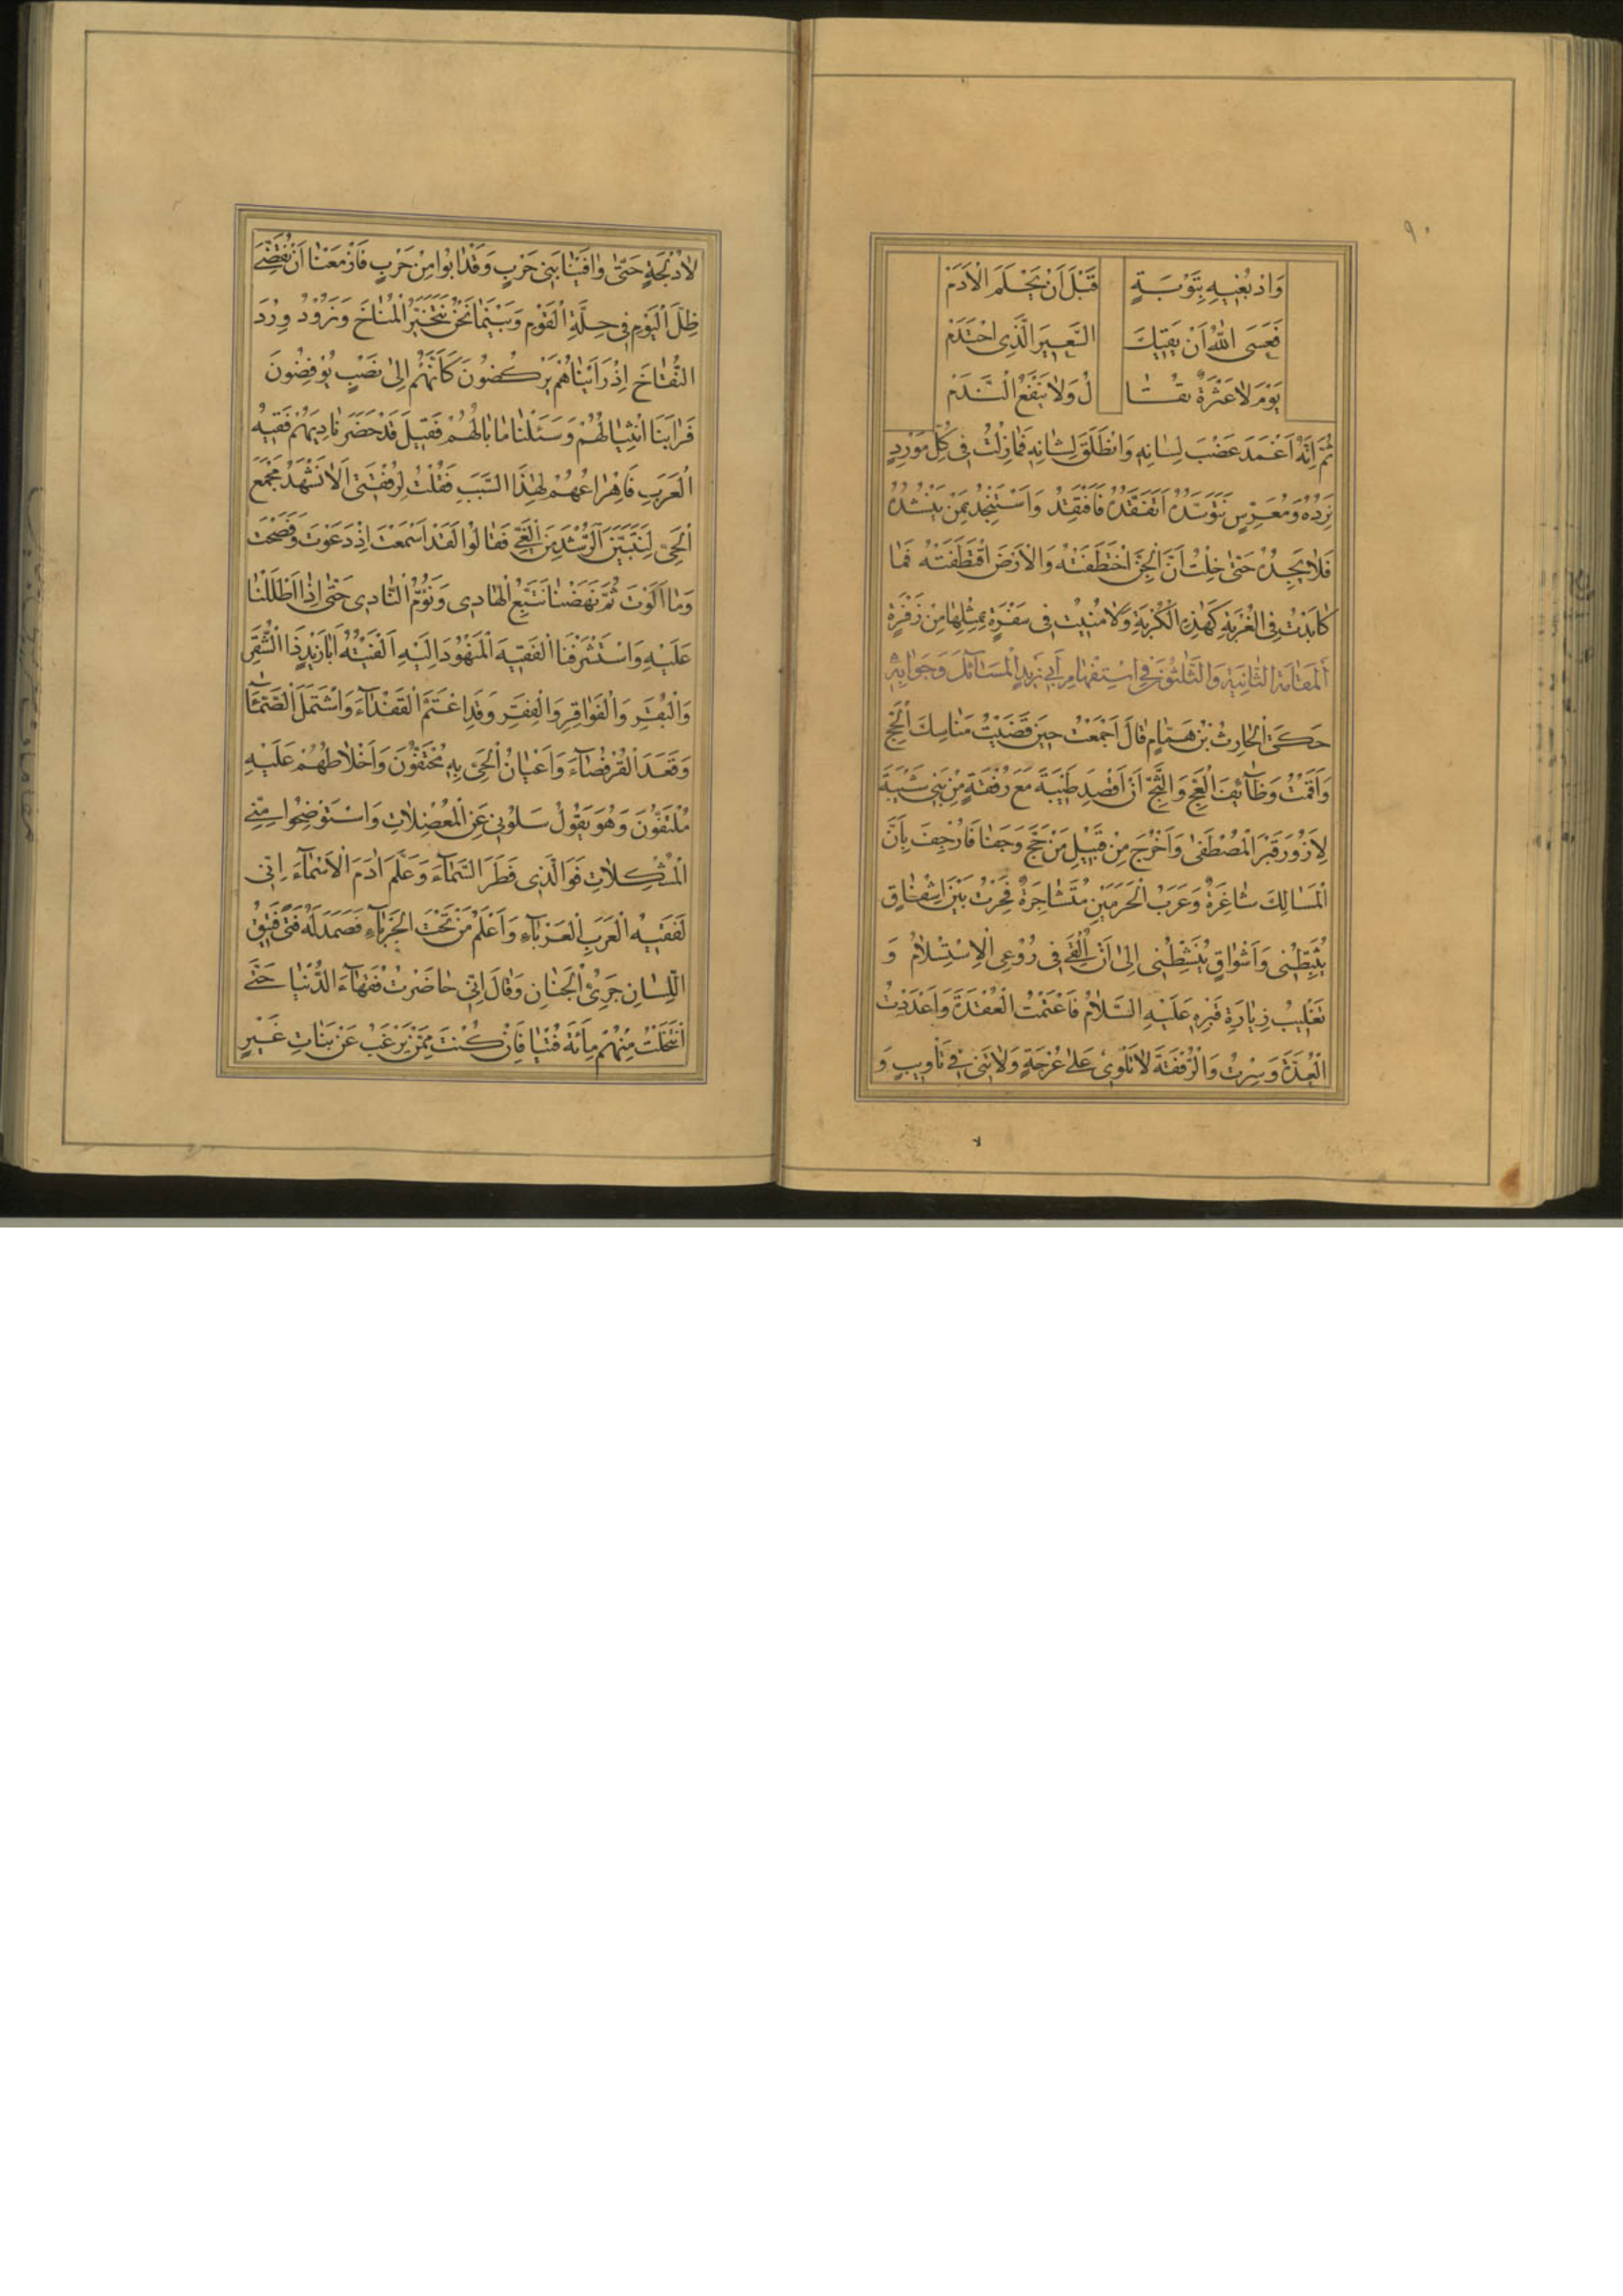 ٩٠
وَادْبُغِيهِ بِتَوْبَةٍ قَبْلَ أَنْ يَحْلَمَ الْأَدَمْ
فَعَسَى اللّٰهُ أَنْ يَقِيكَ السَّعِيرَ الَّذِى احْتَدَمْ
يَوْمَ لَا عَثْرَةٌ تُقَا لُ وَلَا يَنْفَعُ النَّدَمْ
ثُمَّ إِنَّهُ أَغْمَدَ عَضْبَ لِسَانِهِ وَانْطَلَقَ لِشَانِهِ فَمَا زِلْتُ فِى كُلِّ مَوْرِدٍ
نَرِدُهُ وَمُعَرَّسٍ نَتَوَسَّدُهُ أَتَفَقَّدُهُ فَأَفْقِدُهُ وَأَسْتَنْجِدُ بِمَنْ يَنْشُدُهُ
فَلَا يَجِدُهُ حَتَّى خِلْتُ أَنَّ الْجِنَّ اخْتَطَفَتْهُ وَالْأَرْضَ اقْتَطَفَتْهُ فَمَا
كَابَدْتُ فِى الْغُرْبَةِ كَهٰذِهِ الْكُرْبَةِ وَلَا مُنِيتُ فِى سَفْرَةٍ بِمِثْلِهَا مِنْ زَفْرَةٍ
اَلْمَقَامَةُ الثَّانِيَةُ وَالثَّلٰثُونَ فِى اسْتِفْهَامِ أَبِى زَيْدٍ الْمَسَآئِلَ وَجَوَابِهِ
حَكَى الْحَارِثُ بْنُ هَمَّامٍ قَالَ أَجْمَعْتُ حِينَ قَضَيْتُ مَنَاسِكَ الْحَجِّ
وَأَقَمْتُ وَظَآئِفَ الْعَجِّ وَالثَّجِّ أَنْ أَقْصِدَ طَيْبَةَ مَعَ رُفْقَةٍ مِنْ بَنِى شَيْبَةَ
لِأَزُورَ قَبْرَ الْمُصْطَفَى وَأَخْرُجَ مِنْ قَبِيلِ مَنْ حَجَّ وَجَفَا فَأُرْجِفَ بِأَنَّ
الْمَسَالِكَ شَاغِرَةٌ وَعَرَبَ الْحَرَمَيْنِ مُتَشَاجِرَةٌ فَحِرْتُ بَيْنَ إِشْفَاقٍ
يُثَبِّطُنِى وَأَشْوَاقٍ تُنَشِّطُنِى إِلَى أَنْ أُلْقِىَ فِى رُوْعِى الْاِسْتِسْلَامُ وَ
تَغْلِيبُ زِيَارَةِ قَبْرِهِ عَلَيْهِ السَّلَامُ فَاعْتَمْتُ الْعُقْدَةَ وَأَعْدَدْتُ
الْعُدَّةَ وَسِرْتُ وَالرُّفْقَةَ لَا نَلْوِى عَلَى عُرْجَةٍ وَلَا نَنِى فِى تَأْوِيبٍ وَ
لَا دُلْجَةٍ حَتَّى وَافَيْنَا بَنِى حَرْبٍ وَقَدْ آبُوا مِنْ حَرْبٍ فَأَزْمَعْنَا أَنْ نُقَضِّىَ
ظِلَّ الْيَوْمِ فِى حِلَّةِ الْقَوْمِ وَبَيْنَمَا نَحْنُ نَتَخَيَّرُ الْمُنَاخَ وَنَرُودُ وِرْدَ
النُّقَاخَ إِذْ رَأَيْنَاهُمْ يَرْكُضُونَ كَأَنَّهُمْ إِلَى نُصُبٍ يُوفِضُونَ
فَرَابَنَا انْثِيَالُهُمْ وَسَئَلْنَا مَا بَالُهُمْ فَقِيلَ قَدْ حَضَرَ نَادِيَهُمْ فَقِيهُ
الْعَرَبِ فَإِهْرَاعُهُمْ لِهٰذَا السَّبَبِ فَقُلْتُ لِرُفْقَتِى أَلَا نَشْهَدُ مَجْمَعَ
الْحَىِّ لِنَتَبَيَّنَ الرُّشْدَ مِنَ الْغَىِّ فَقَالُوا لَقَدْ أَسْمَعْتَ إِذْ دَعَوْتَ وَنَصَحْتَ
وَمَا أَلَوْتَ ثُمَّ نَهَضْنَا نَتَّبِعُ الْهَادِى وَنَؤُمُّ النَّادِى حَتَّى إِذَا أَظْلَلْنَا
عَلَيْهِ وَاسْتَشْرَفْنَا الْفَقِيهَ الْمَنْهُودَ إِلَيْهِ أَلْفَيْتُهُ أَبَا زَيْدٍ ذَا الشُّقَرِ
وَالْبُقَرِ وَالْفَوَاقِرِ وَالْفِقَرِ وَقَدِ اعْتَمَّ الْقَفْدَآءَ وَاشْتَمَلَ الصَّمَّآءَ
وَقَعَدَ الْقُرْفُصَآءَ وَأَعْيَانُ الْحَىِّ بِهِ مُحْتَفُّونَ وَأَخْلَاطُهُمْ عَلَيْهِ
مُلْتَفُّونَ وَهُوَ يَقُولُ سَلُونِى عَنِ الْمُعْضِلَاتِ وَاسْتَوْضِحُوا مِنِّى
الْمُشْكِلَاتِ فَوَالَّذِى فَطَرَ السَّمَآءَ وَعَلَّمَ اٰدَمَ الْأَسْمَآءَ إِنِّى
لَفَقِيهُ الْعَرَبِ الْعَرْبَآءِ وَأَعْلَمُ مَنْ تَحْتَ الْجَرْبَآءِ فَصَمَدَ لَهُ فَتًى فَتِيقُ
اللِّسَانِ جَرِىُّ الْجَنَانِ وَقَالَ إِنِّى حَاضَرْتُ فُقَهَآءَ الدُّنْيَا حَتَّى
انْتَخَلْتُ مِنْهُمْ مِائَةَ فُتْيَا فَإِنْ كُنْتَ مِمَّنْ يَرْغَبُ عَنْ بَنَاتِ غَيْرٍ